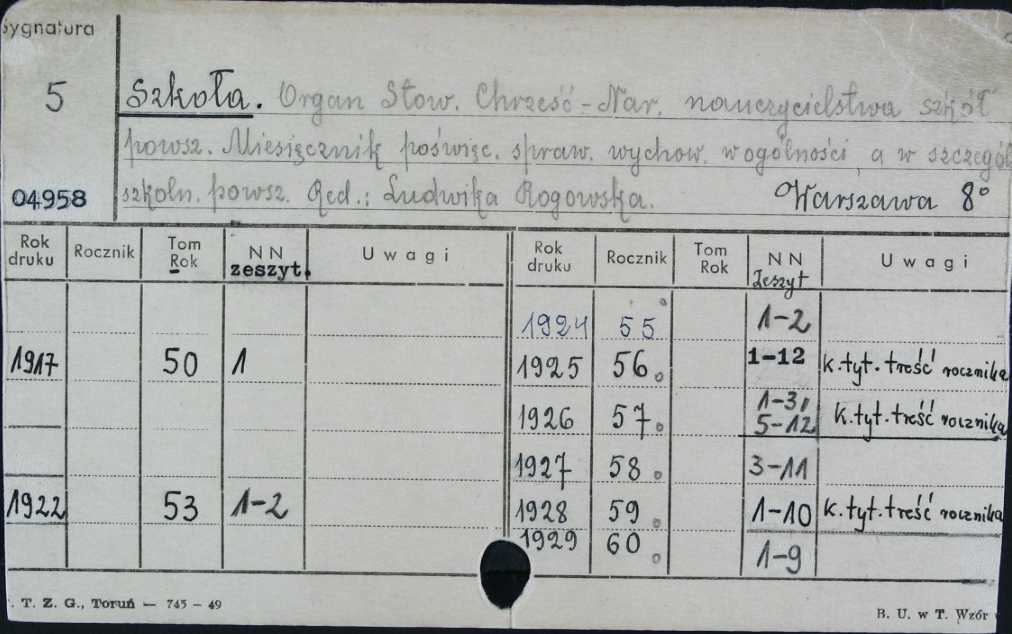 Sygnatura
5
04958
Szkoła. Organ Stow. Chrześć-Nar. nauczycielstwa szkół
powsz. Miesięcznik poświęc. spraw. wychow. w ogólności a w szczegól
szkoln. powsz. Red.: Ludwika Rogowska. Warszawa 8°
Rok druku Rocznik Tom Rok NN zeszyt. Uwagi Rok druku Rocznik Tom Rok NN Zeszyt Uwagi
1924 55 1-2
1917 50 1 1925 56 1-12 k.tyt. treść rocznika
1926 57 1-3, 5-12 k.tyt. treść rocznika
1927 58 3-11
1922 53 1-2 1928 59 1-10 k.tyt. treść rocznika
1929 60 1-9
T. Z. G., Toruń — 745 - 49
B. U. w T. Wzór